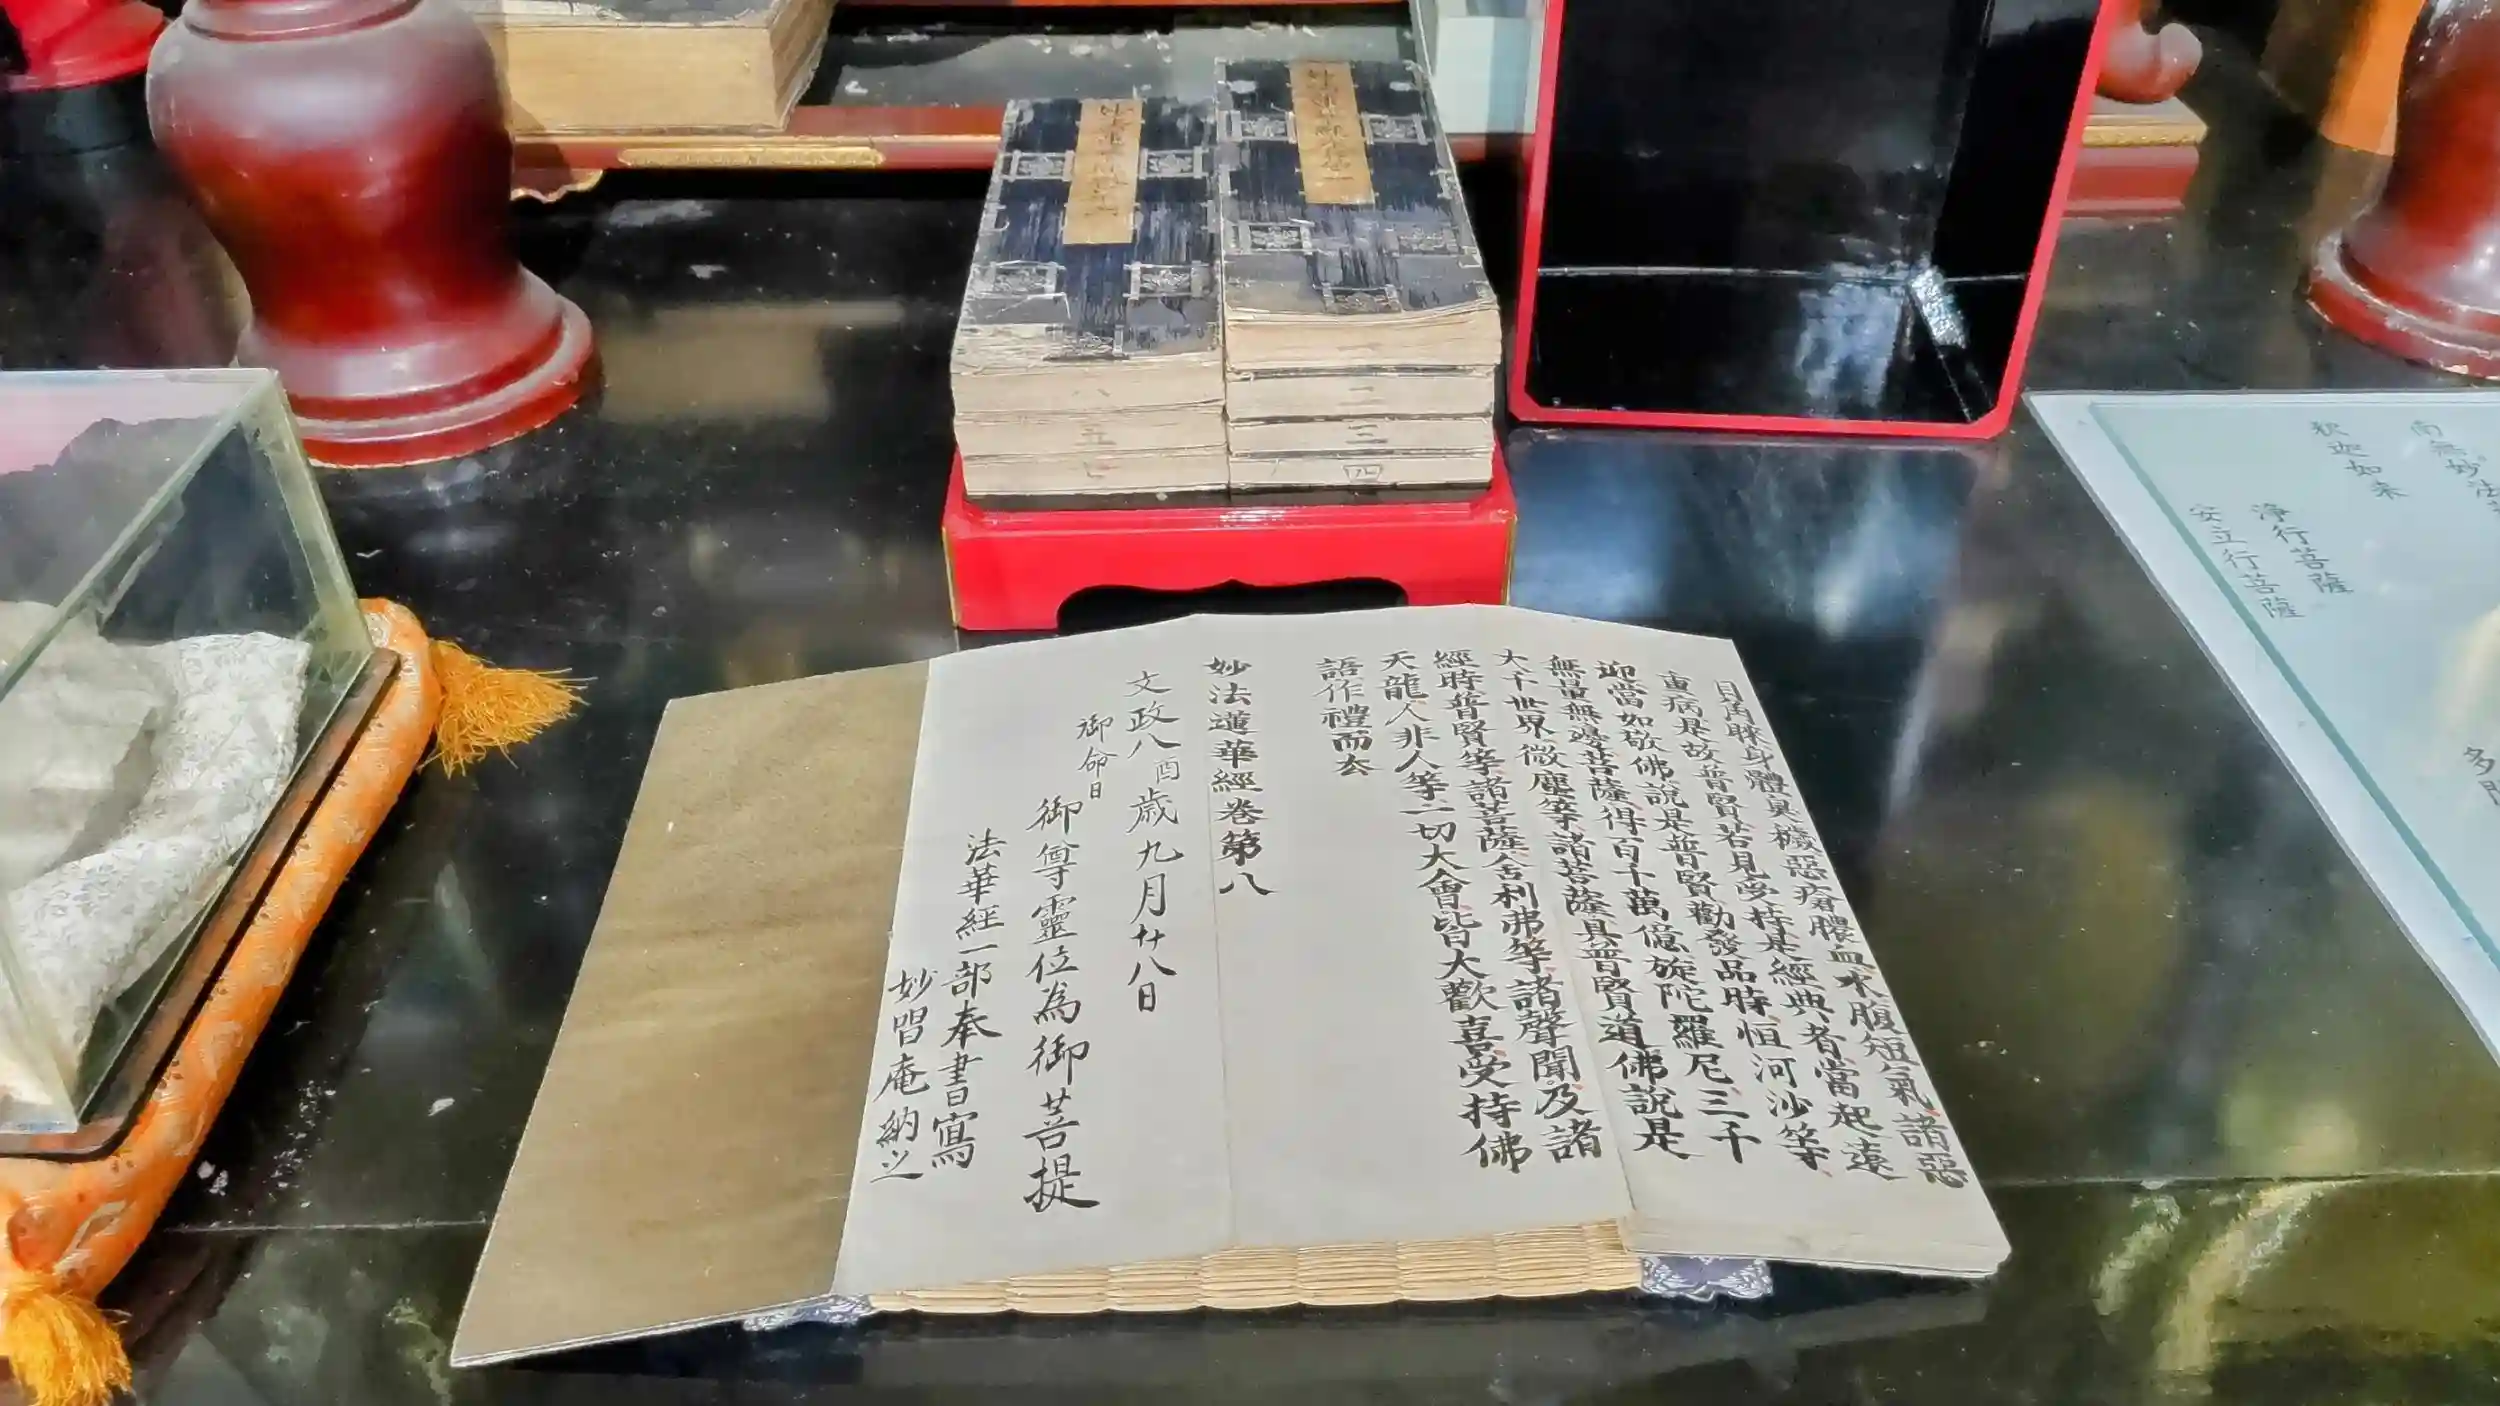 目角睞身體臭穢惡瘡膿血水腹短氣諸惡
重病是故普賢若見受持是經典者當起遠
迎當如敬佛說是普賢勸發品時恒河沙等
無量無邊菩薩得百千萬億旋陀羅尼三千
大千世界微塵等諸菩薩具普賢道佛說是
經時普賢等諸菩薩舍利弗等諸聲聞及諸
天龍人非人等一切大會皆大歡喜受持佛
語作禮而去
妙法蓮華經卷第八
文政八酉歳九月廿八日
御命日
御尊靈位為御菩提
法華經一部奉書寫
妙唱庵納之
一
二
三
四
八
五
七
南無妙法
釈迦如来
浄行菩薩
安立行菩薩
多門